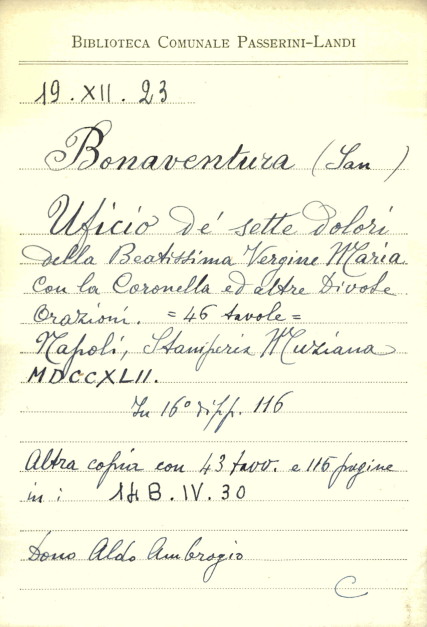 BIBLIOTECA COMUNALE PASSERINI-LANDI
19.XII.23
Bonaventura (San )
Uficio de' sette dolori
della Beatissima Vergine Maria
con la Coronella ed altre Divote
Orazioni. =46 tavole=
Napoli, Stamperia Muziana
MDCCXLII.
In 16° di pp. 116
Altra copia con 43 tavv. e 116 pagine
in: 14 B.IV.30
Dono Aldo Ambrogio
C